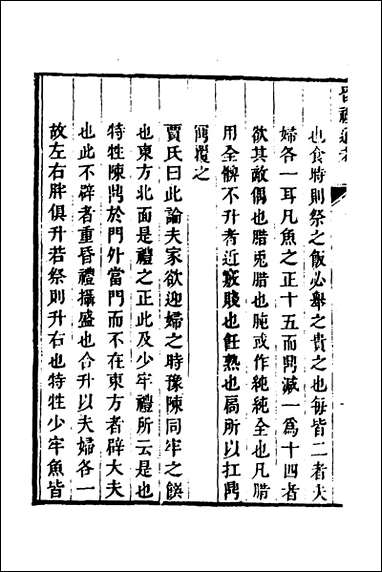 昏禮通考
也食時則祭之飯必舉之貴之也每皆二者夫
婦各一耳凡魚之正十五而鬦減一爲十四者
欲其敵偶也腊兎腊也肫或作純純全也凡腊
用全髀不升者近竅賤也飪熟也扃所以扛鼎
鼏覆之
賈氏曰此論夫家欲迎婦之時豫陳同牢之饌
也東方北面是禮之正此及少牢禮所云是也
特牲陳鼎於門外當門而不在東方者辟大夫
也此不辟者重昏禮攝盛也合升以夫婦各一
故左右胖俱升若祭則升右也特牲少牢魚皆